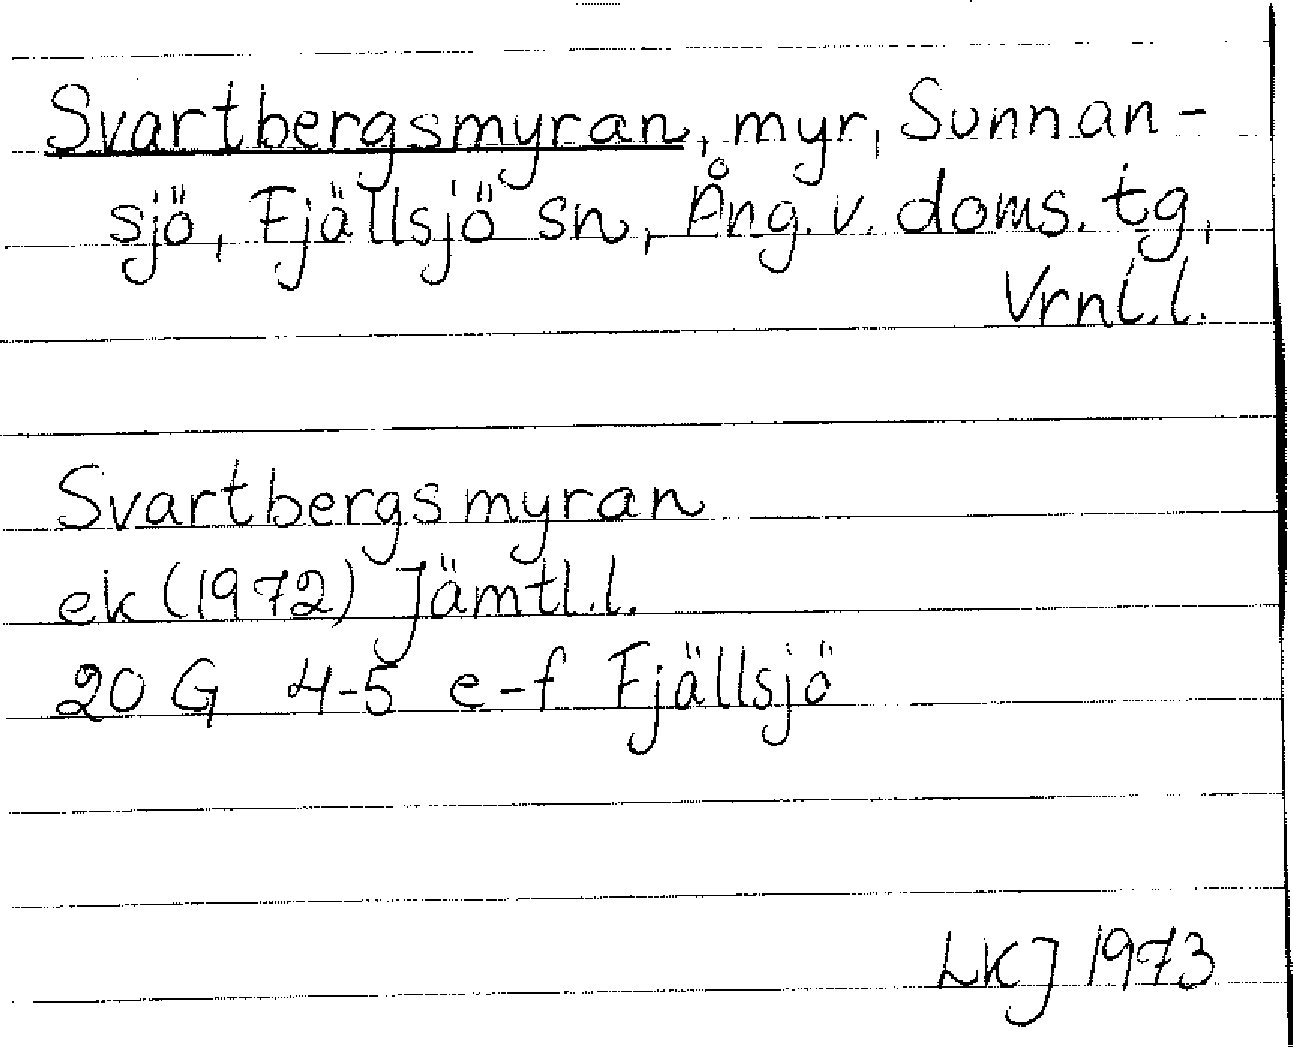 Svartbergsmyran, myr, Sunnan-
sjö, Fjällsjö sn, Ång. v. doms. tg,
Vrnl.l.
Svartbergsmyran
ek (1972) Jämtl.l.
20 G 4-5 e-f Fjällsjö
LKJ 1973